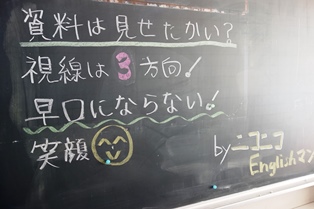 資料は見せたかい?
視線は3方向!
早口にならない!
笑顔
byニコニコ
Englishマン